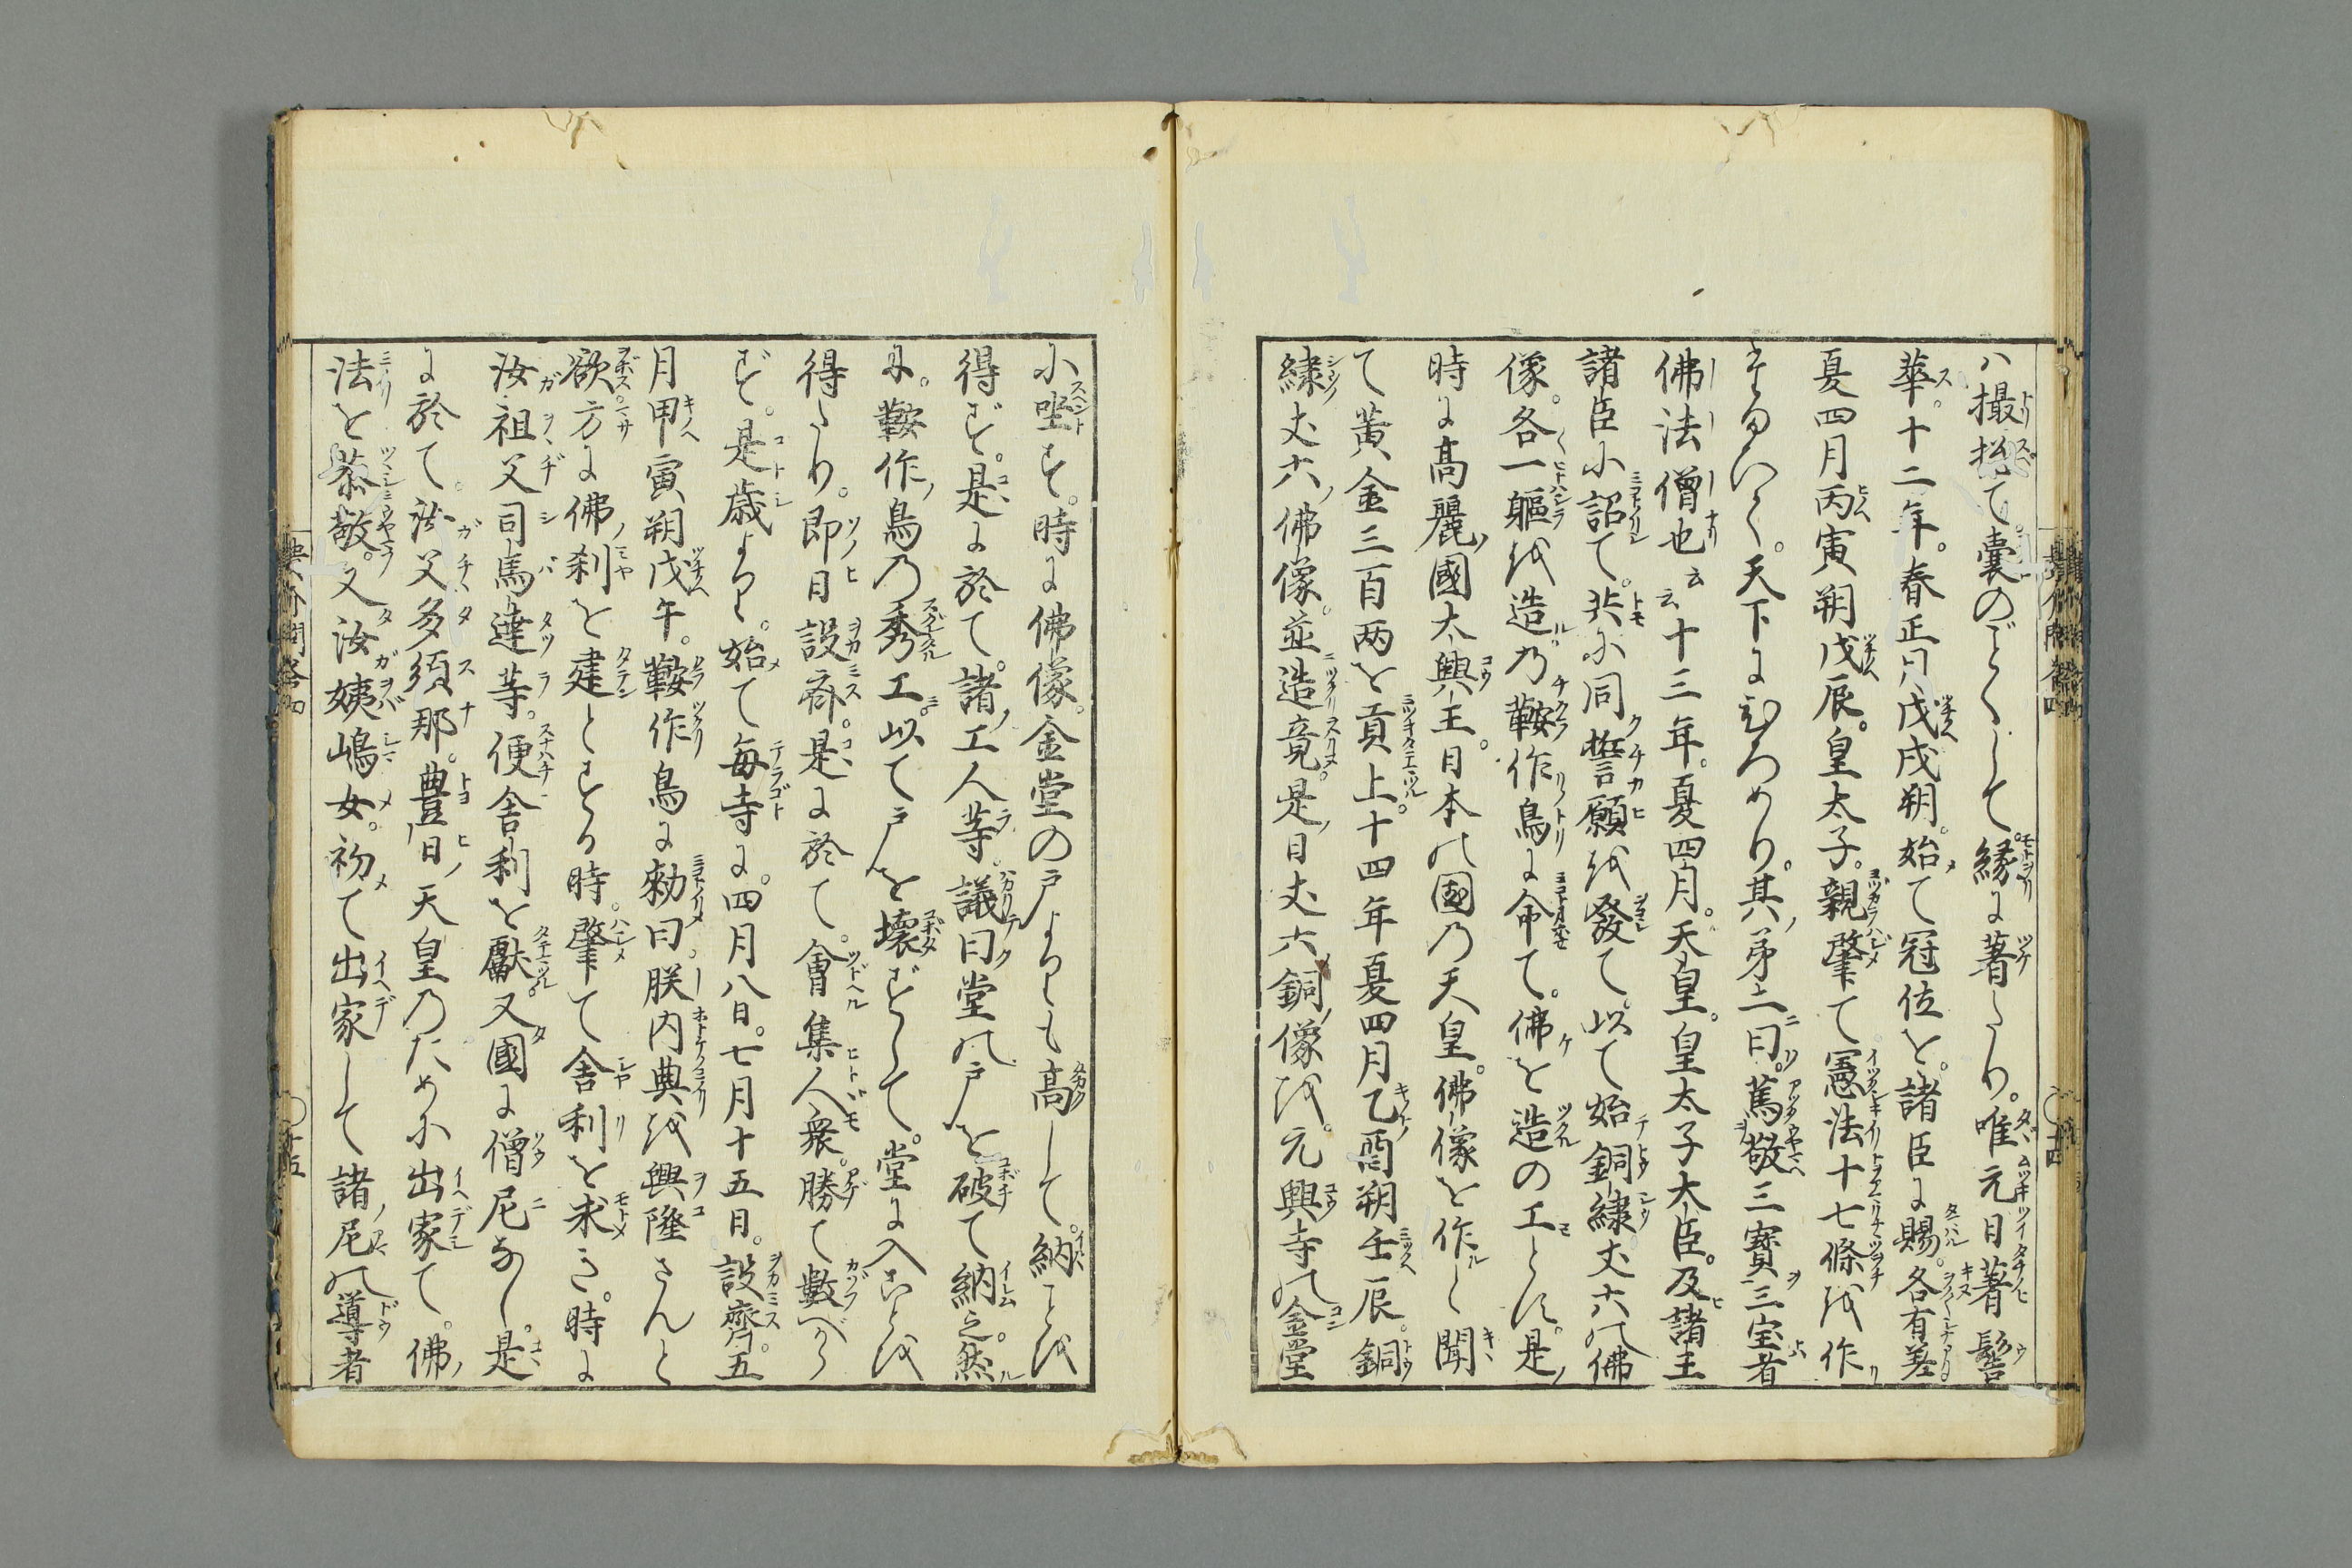 ハ撮摠て囊のごとくして縁に著たり。唯元日著髻
華。十二年。春正月戊戌朔。始て冠位を。諸臣に賜。各有差
夏四月丙寅朔戊辰。皇太子。親肇て憲法十七條を作
天下に
其第二曰。篤敬三寳三宝者
佛法僧也云云十三年。夏四月。天皇。皇太子大臣。及諸王
諸臣に詔て。共に同誓願を發て。以て始銅繍丈六の佛
像。各一軀を造乃鞍作鳥に命て。佛を造の工とす。是
時に髙麗國大興王。日本の國の天皇。佛像を作と聞
て黄金三百两を貢上。十四年夏四月乙酉朔壬辰。銅
繍丈六佛像。並造竟。是日丈六銅像を。元興寺の金堂
に坐す。時に佛像。金堂の戸よりも高して。納ことを
得ず。是に於て。諸工人等。議曰堂の戸を破て納之。然
に。鞍作鳥の秀工。以て戸を壊ずして。堂に入ことを
得たり。即日設斎。是に於て。會集人衆。勝て數べから
ず。是歳より。始て毎寺に。四月八日。七月十五日。設齊。五
月甲寅朔戊午。鞍作鳥に勅曰。朕内典を興隆さんと
欲方に佛刹を建とする時。肇て舎利を求き。時に
汝祖父司馬達等。便舎利を獻。又國に僧尼なし。是
に於て。汝父多須那。豊日天皇のために出家て。佛
法を恭敬。又汝姨嶋女。初て出家して諸尼の導者